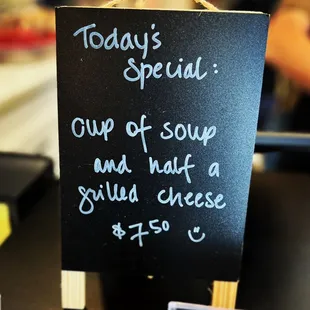 Today's
Special:
cup of soup
and half a
grilled cheese
$7.50